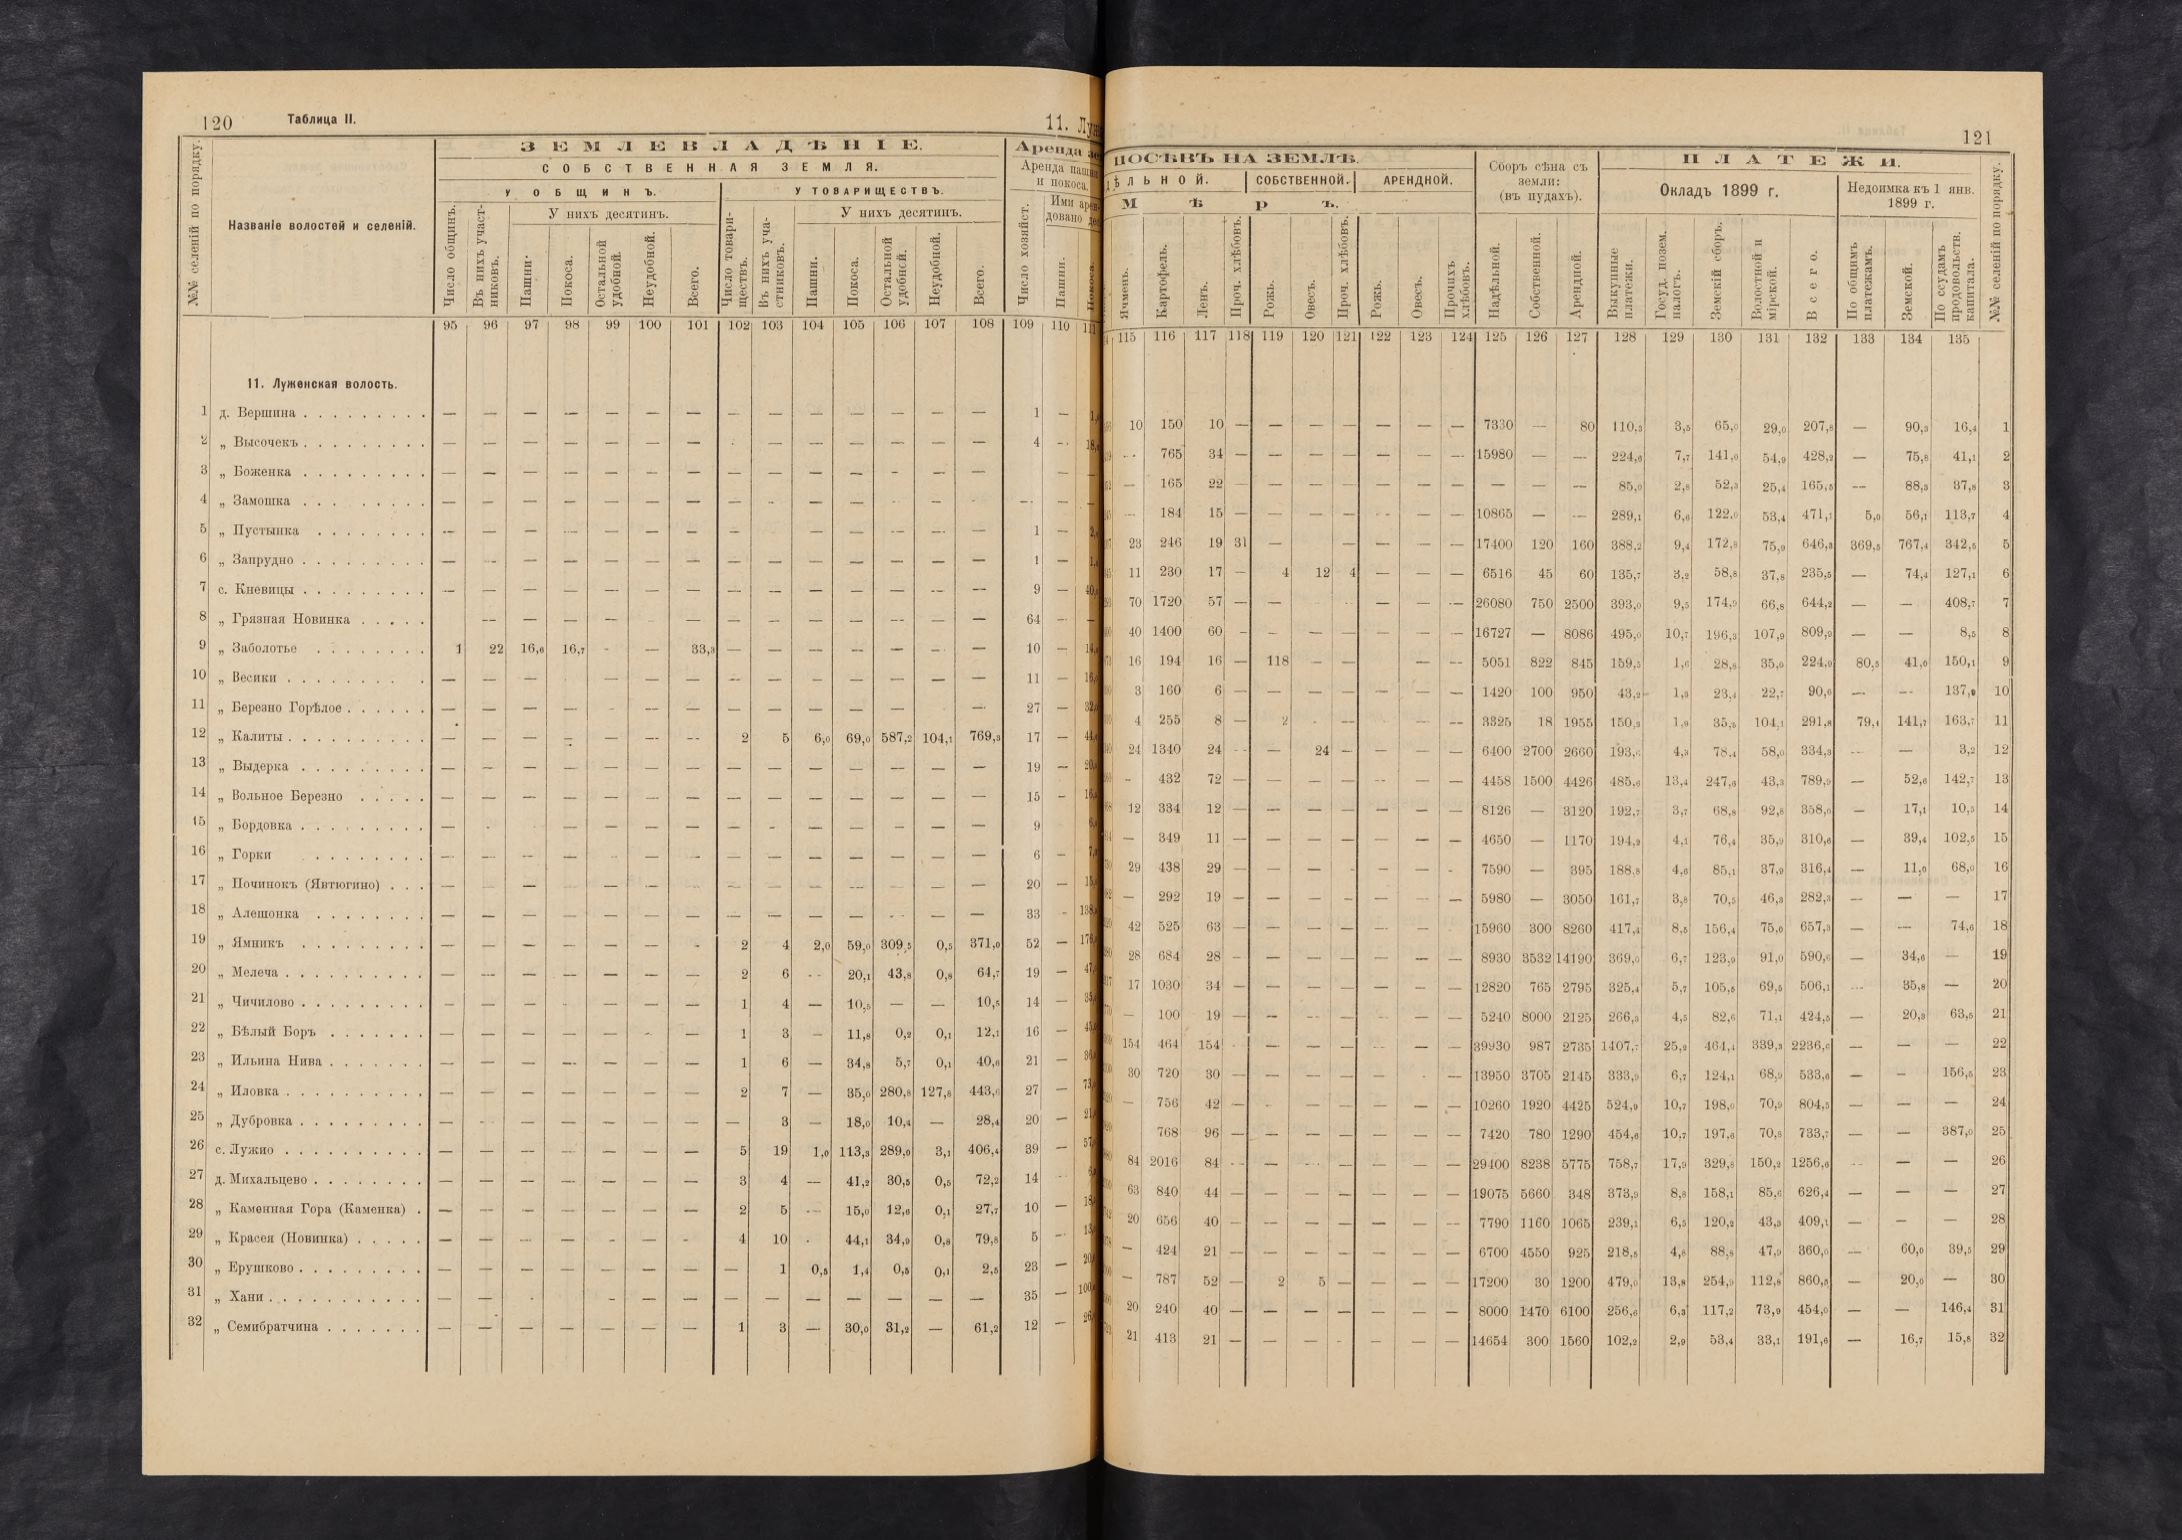 120 Таблица II. 11. Лу
№№ селеній по порядку.
Названіе волостей и селеній.
ЗЕМЛЕВЛАДѢНІЕ.
СОБСТВЕННАЯ ЗЕМЛЯ.
У ОБЩИНЪ.
У ТОВАРИЩЕСТВЪ.
У нихъ десятинъ.
У нихъ десятинъ.
Аренда
Аренда
и покоса.
Ими
Число общинъ.
Въ нихъ участ-
никовъ.
Пашни.
Покоса.
Остальной
удобной.
Неудобной.
Всего.
Число товари-
ществъ.
Въ нихъ уча-
стниковъ.
Пашни.
Покоса.
Остальной
удобной.
Неудобной.
Всего.
Число хозяйст.
Пашни.
95 96 97 98 99 100 101 102 103 104 105 106 107 108 109 110
11. Луженская волость.
1 д. Вершина — — — — — — — — — — — — — — 1 —
2 „ Высочекъ — — — — — — — — — — — — — — 4 —
3 „ Боженка — — — — — — — — — — — — — —
4 „ Замошка — — — — — — — — — — — — — — —
5 „ Пустынка — — — — — — — — — — — — — — 1 —
6 „ Запрудно — — — — — — — — — — — — — — 1 —
7 с. Кневицы — — — — — — — — — — — — — — 9 —
8 „ Грязная Новинка — — — — — — — — — — — — — 64 —
9 „ Заболотье 1 22 16,6 16,7 — — 33,3 — — — — — — — 10 —
10 „ Весики — — — — — — — — — — — — — — 11 —
11 „ Березно Горѣлое — — — — — — — — — — — — — — 27 —
12 „ Калиты — — — — — — — 2 5 6,0 69,0 587,2 104,1 769,3 17 —
13 „ Выдерка — — — — — — — — — — — — — — 19 —
14 „ Вольное Березно — — — — — — — — — — — — — — 15 —
15 „ Бордовка — — — — — — — — — — — — — — 9
16 „ Горки — — — — — — — — — — — — — — 6 —
17 „ Починокъ (Явтюгино) — — — — — — — — — — — — — — 20 —
18 „ Алешонка — — — — — — — — — — — — — — 33 —
19 „ Ямникъ — — — — — — — 2 4 2,0 59,0 309,5 0,5 371,0 52 —
20 „ Мелеча — — — — — — — 2 6 — 20,1 43,8 0,8 64,7 19 —
21 „ Чичилово — — — — — — — 1 4 — 10,5 — — 10,5 14 —
22 „ Бѣлый Боръ — — — — — — — 1 3 — 11,8 0,2 0,1 12,1 16 —
23 „ Ильина Нива — — — — — — — 1 6 — 34,8 5,7 0,1 40,6 21 —
24 „ Иловка — — — — — — — 2 7 — 35,0 280,8 127,8 443,6 27 —
25 „ Дубровка — — — — — — — — 3 — 18,0 10,4 — 28,4 20 —
26 с. Лужно — — — — — — — 5 19 1,0 113,3 289,0 3,1 406,4 39 —
27 д. Михальцево — — — — — — — 3 4 — 41,2 30,5 0,5 72,2 14
28 „ Каменная Гора (Каменка) — — — — — — — 2 5 — 15,0 12,6 0,1 27,7 10 —
29 „ Красея (Новинка) — — — — — — — 4 10 — 44,1 34,9 0,8 79,8 5 —
30 „ Ерушково — — — — — — — — 1 0,5 1,4 0,5 0,1 2,5 23 —
31 „ Хани — — — — — — — — — — — — — — 35 —
32 „ Семибратчина — — — — — — — 1 3 — 30,0 31,2 — 61,2 12 —
121
ПОСѢВЪ НА ЗЕМЛѢ.
ДѢЛЬНОЙ. СОБСТВЕННОЙ. АРЕНДНОЙ.
Мѣръ.
Сборъ сѣна съ
земли:
(въ пудахъ).
ПЛАТЕЖИ.
Окладъ 1899 г.
Недоимка къ 1 янв.
1899 г.
Ячмень.
Картофель.
Ленъ.
Проч. хлѣбовъ.
Рожь.
Овесъ.
Проч. хлѣбовъ.
Рожь.
Овесъ.
Прочихъ
хлѣбовъ.
Надѣльной.
Собственной.
Арендной.
Выкупные
платежи.
Госуд. позем.
налогъ.
Земскій сборъ.
Волостной и
мірской.
Всего.
По общимъ
платежамъ.
Земской.
По ссудамъ
продовольств.
капитала.
№№ селеній по порядку.
115 116 117 118 119 120 121 122 123 124 125 126 127 128 129 130 131 132 133 134 135
10 150 10 — — — — — — — 7330 — 80 110,3 3,5 65,0 29,0 207,8 — 90,3 16,4 1
— 765 34 — — — — — — — 15980 — — 224,6 7,7 141,0 54,9 428,2 — 75,8 41,1 2
— 165 22 — — — — — — — — — — 85,0 2,8 52,3 25,4 165,5 — 88,3 37,8 3
— 184 15 — — — — — — — 10865 — — 289,1 6,6 122,0 53,4 471,1 5,0 56,1 113,7 4
23 246 19 31 — — — — — — 17400 120 160 388,2 9,4 172,8 75,9 646,3 369,5 767,4 342,5 5
11 230 17 — 4 12 4 — — — 6516 45 60 135,7 3,2 58,8 37,8 235,5 — 74,4 127,1 6
70 1720 57 — — — — — — 26080 750 2500 393,0 9,5 174,9 66,8 644,2 — — 408,7 7
40 1400 60 — — — — — — — 16727 — 8086 495,0 10,7 196,3 107,9 809,9 — — 8,5 8
16 194 16 — 118 — — — — 5051 822 845 159,5 1,6 28,8 35,0 224,9 80,5 41,0 150,1 9
3 160 6 — — — — — — — 1420 100 950 43,2 1,3 23,4 22,7 90,6 — — 137,9 10
4 255 8 — 2 — — — — — 3325 18 1955 150,3 1,9 35,5 104,1 291,8 79,4 141,7 163,7 11
24 1340 24 — — 24 — — — — 6400 2700 2660 193,6 4,3 78,4 58,0 334,3 — — 3,2 12
— 432 72 — — — — — — — 4458 1500 4426 485,6 13,4 247,6 43,3 789,9 — 52,6 142,7 13
12 334 12 — — — — — — — 8126 — 3120 192,7 3,7 68,8 92,8 358,0 — 17,1 10,5 14
— 349 11 — — — — — — — 4650 — 1170 194,2 4,1 76,4 35,9 310,6 — 39,4 102,5 15
29 438 29 — — — — — — — 7590 — 395 188,8 4,6 85,1 37,9 316,4 — 11,0 68,0 16
— 292 19 — — — — — — — 5980 — 3050 161,7 3,8 70,5 46,3 282,3 — — — 17
42 525 63 — — — — — — — 15960 300 8260 417,4 8,5 156,4 75,0 657,3 — — 74,6 18
28 684 28 — — — — — — — 8930 3532 14190 369,0 6,7 123,9 91,0 590,6 — 34,6 — 19
17 1030 34 — — — — — — — 12820 765 2795 325,4 5,7 105,5 69,5 506,1 — 35,8 — 20
— 100 19 — — — — — — — 5240 8000 2125 266,3 4,5 82,6 71,1 424,5 — 20,3 63,5 21
154 464 154 — — — — — — — 39930 987 2735 1407,7 25,2 464,4 339,3 2236,6 — — — 22
30 720 30 — — — — — — — 13950 3705 2145 333,9 6,7 124,1 68,9 533,6 — — 156,5 23
— 756 42 — — — — — — — 10260 1920 4425 524,9 10,7 198,0 70,9 804,5 — — — 24
768 96 — — — — — — — 7420 780 1290 454,6 10,7 197,6 70,8 733,7 — — 387,0 25
84 2016 84 — — — — — — — 29400 8238 5775 758,7 17,9 329,8 150,2 1256,6 — — — 26
63 840 44 — — — — — — — 19075 5660 348 373,9 8,8 158,1 85,6 626,4 — — — 27
20 656 40 — — — — — — — 7790 1160 1065 239,1 6,5 120,2 43,3 409,1 — — — 28
— 424 21 — — — — — — — 6700 4550 925 218,5 4,8 88,8 47,9 360,0 — 60,0 39,5 29
— 787 52 — 2 5 — — — — 17200 30 1200 479,0 13,8 254,9 112,8 860,5 — 20,0 — 30
20 240 40 — — — — — — — 8000 1470 6100 256,6 6,3 117,2 73,9 454,0 — — 146,4 31
21 413 21 — — — — — — — 14654 300 1560 102,2 2,9 53,4 33,1 191,6 — 16,7 15,8 32